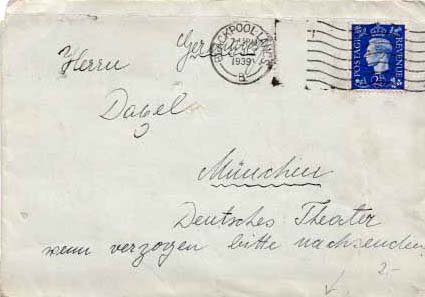 Germany
BLACKPOOL LANCS
1939
B
POSTAGE REVENUE
2½D
Herrn
Dagel
München
Deutsches Theater
wenn verzogen bitte nachsenden
2-